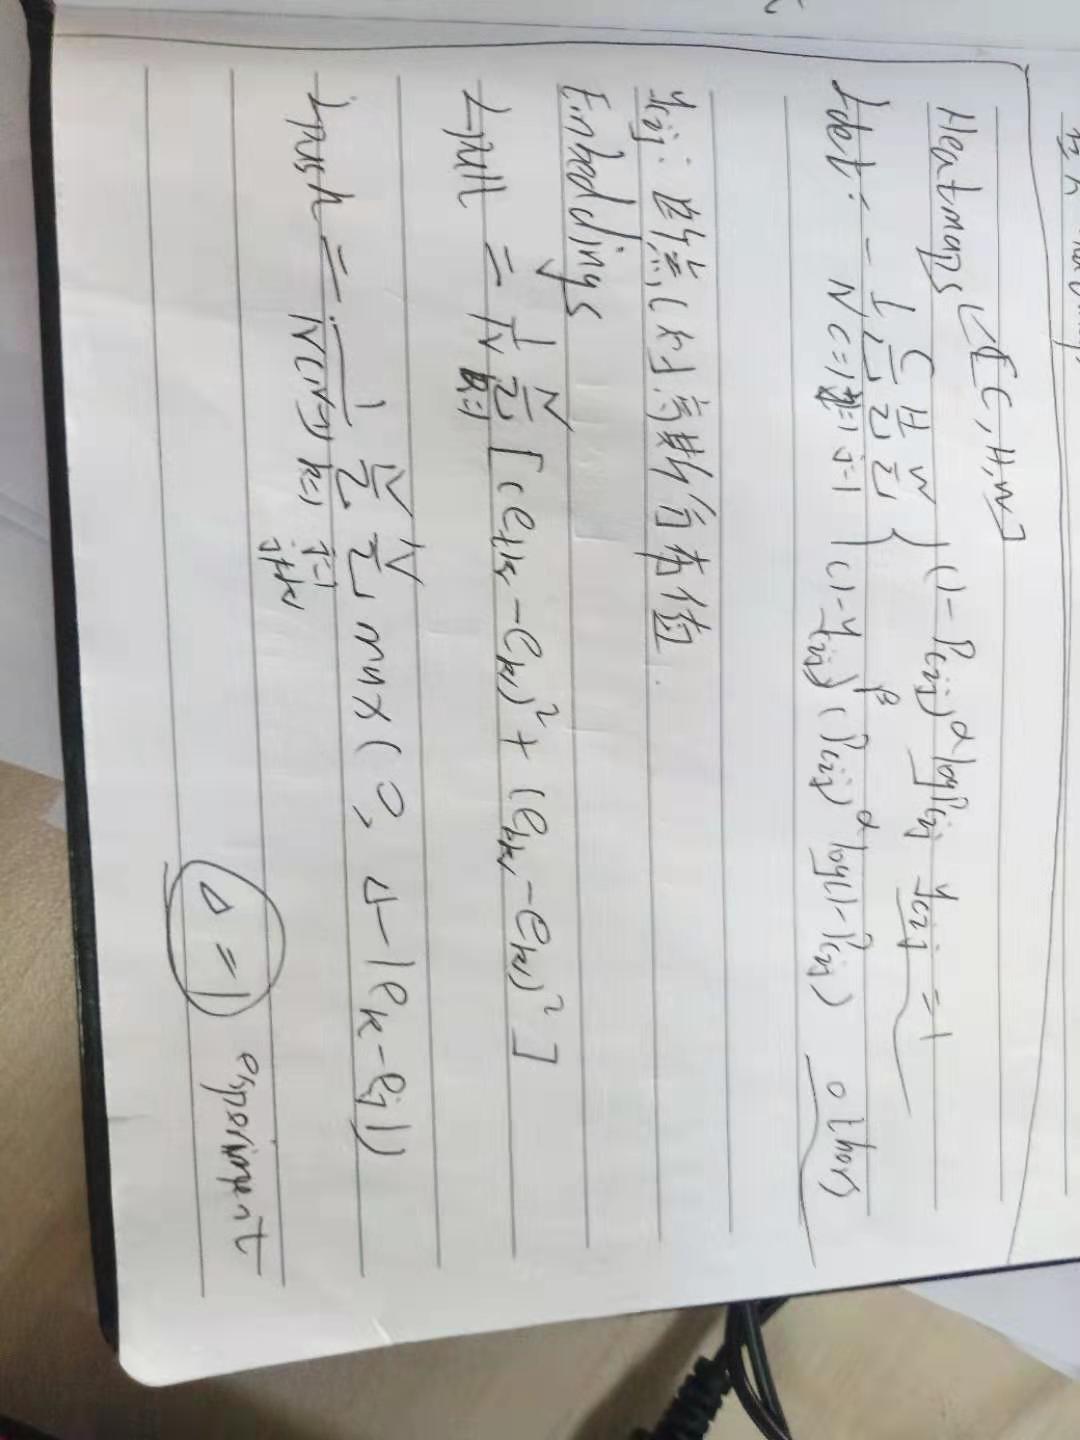 Heatmaps [C,H,W]
Ldet: - 1/N Σ_{c=1}^{C} Σ_{i=1}^{H} Σ_{j=1}^{W} { (1-Pcij)^α log Pcij ycij = 1
(1-ycij)^β (Pcij)^α log(1-Pcij) others
ycij: 角点(对高斯分布值.
Embeddings
Lpull = 1/N Σ_{k=1}^{N} [(etk - ek)² + (ebk - ek)²]
Lpush = 1/N(N-1) Σ_{k=1}^{N} Σ_{j=1, j≠k}^{N} max(0, Δ-|ek-ej|)
Δ=1 experiment